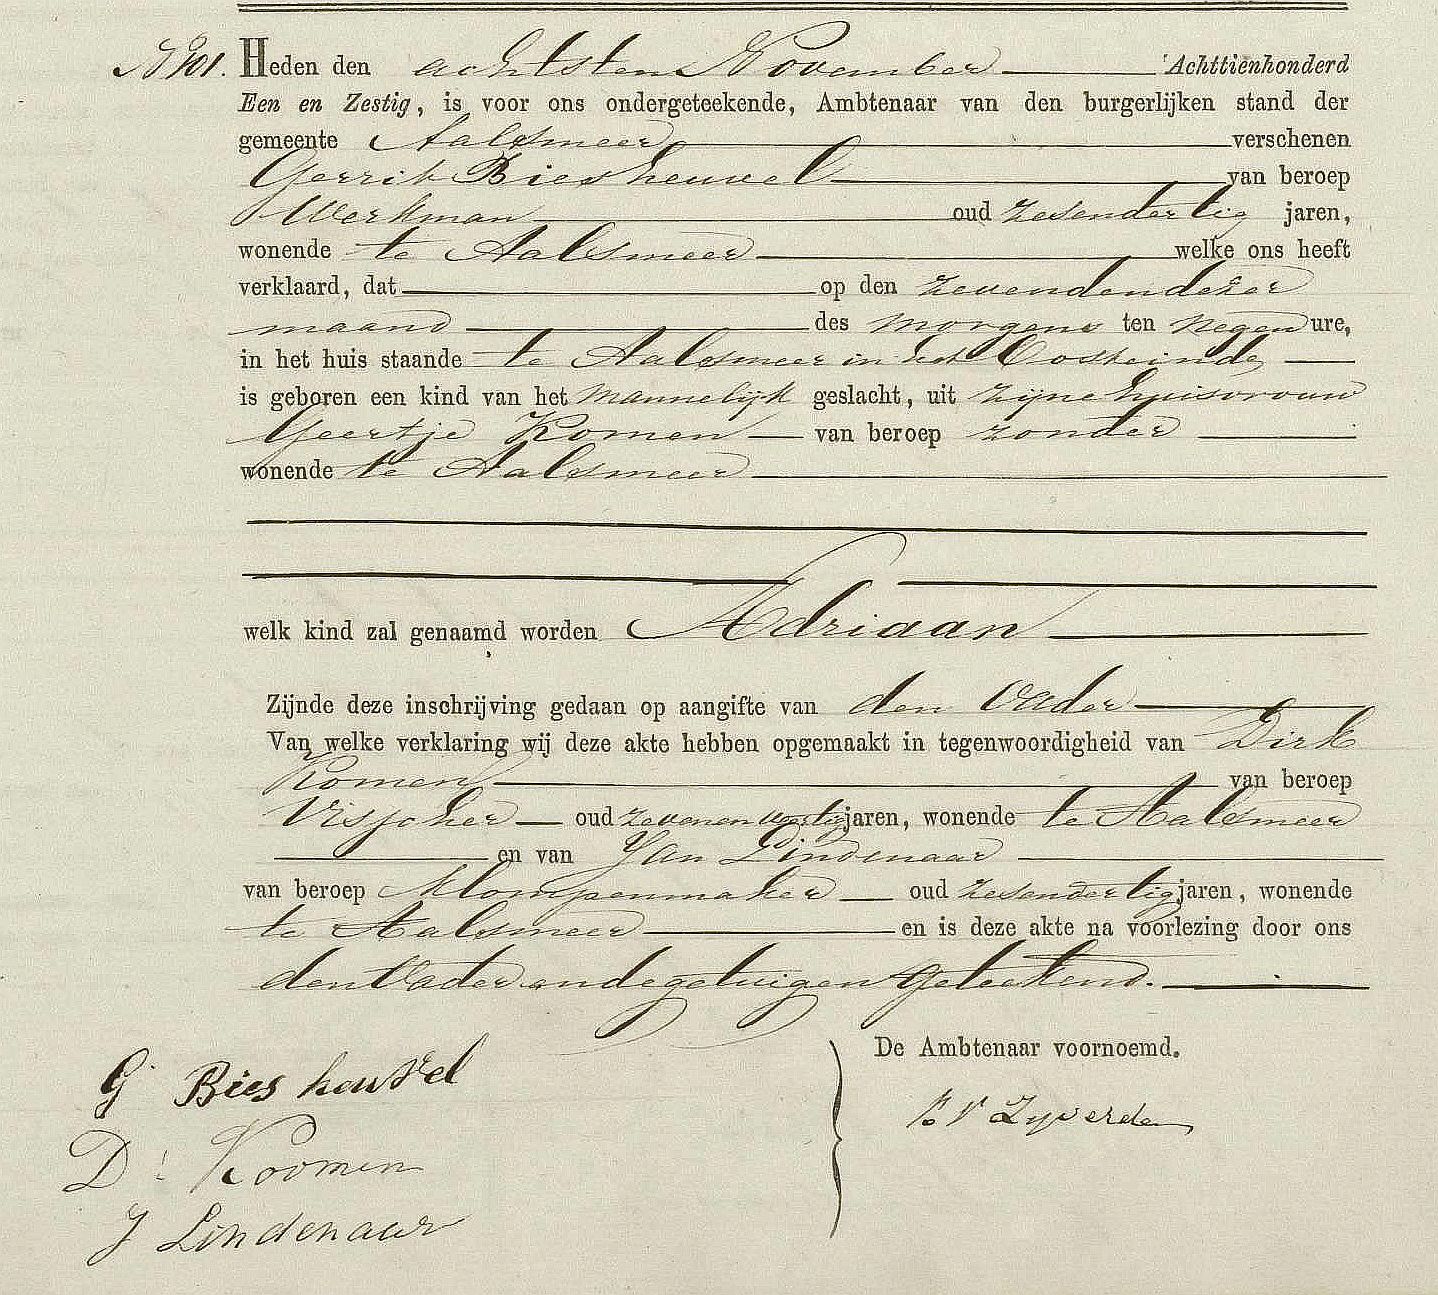 No 101. Heden den achtsten November Achttienhonderd
Een en Zestig, is voor ons ondergeteekende, Ambtenaar van den burgerlijken stand der
gemeente Aalsmeer verschenen
Gerrit Biesheuvel van beroep
Werkman oud zesendertig jaren,
wonende te Aalsmeer welke ons heeft
verklaard, dat op den zevenden dezer
maand des morgens ten negen ure,
in het huis staande te Aalsmeer in het Oosteinde
is geboren een kind van het mannelijk geslacht, uit zijne huisvrouw
Geertje Komen van beroep zonder
wonende te Aalsmeer
welk kind zal genaamd worden Adriaan
Zijnde deze inschrijving gedaan op aangifte van den Vader
Van welke verklaring wij deze akte hebben opgemaakt in tegenwoordigheid van Dirk
Komen van beroep
Visscher oud zevenenveertig jaren, wonende te Aalsmeer
en van Jan Lindenaar
van beroep Klompenmaker oud zesendertig jaren, wonende
te Aalsmeer en is deze akte na voorlezing door ons
den Vader en de getuigen geteekend.
De Ambtenaar voornoemd.
G Biesheuvel
Zyverden
D: Koomen
J Lindenaar